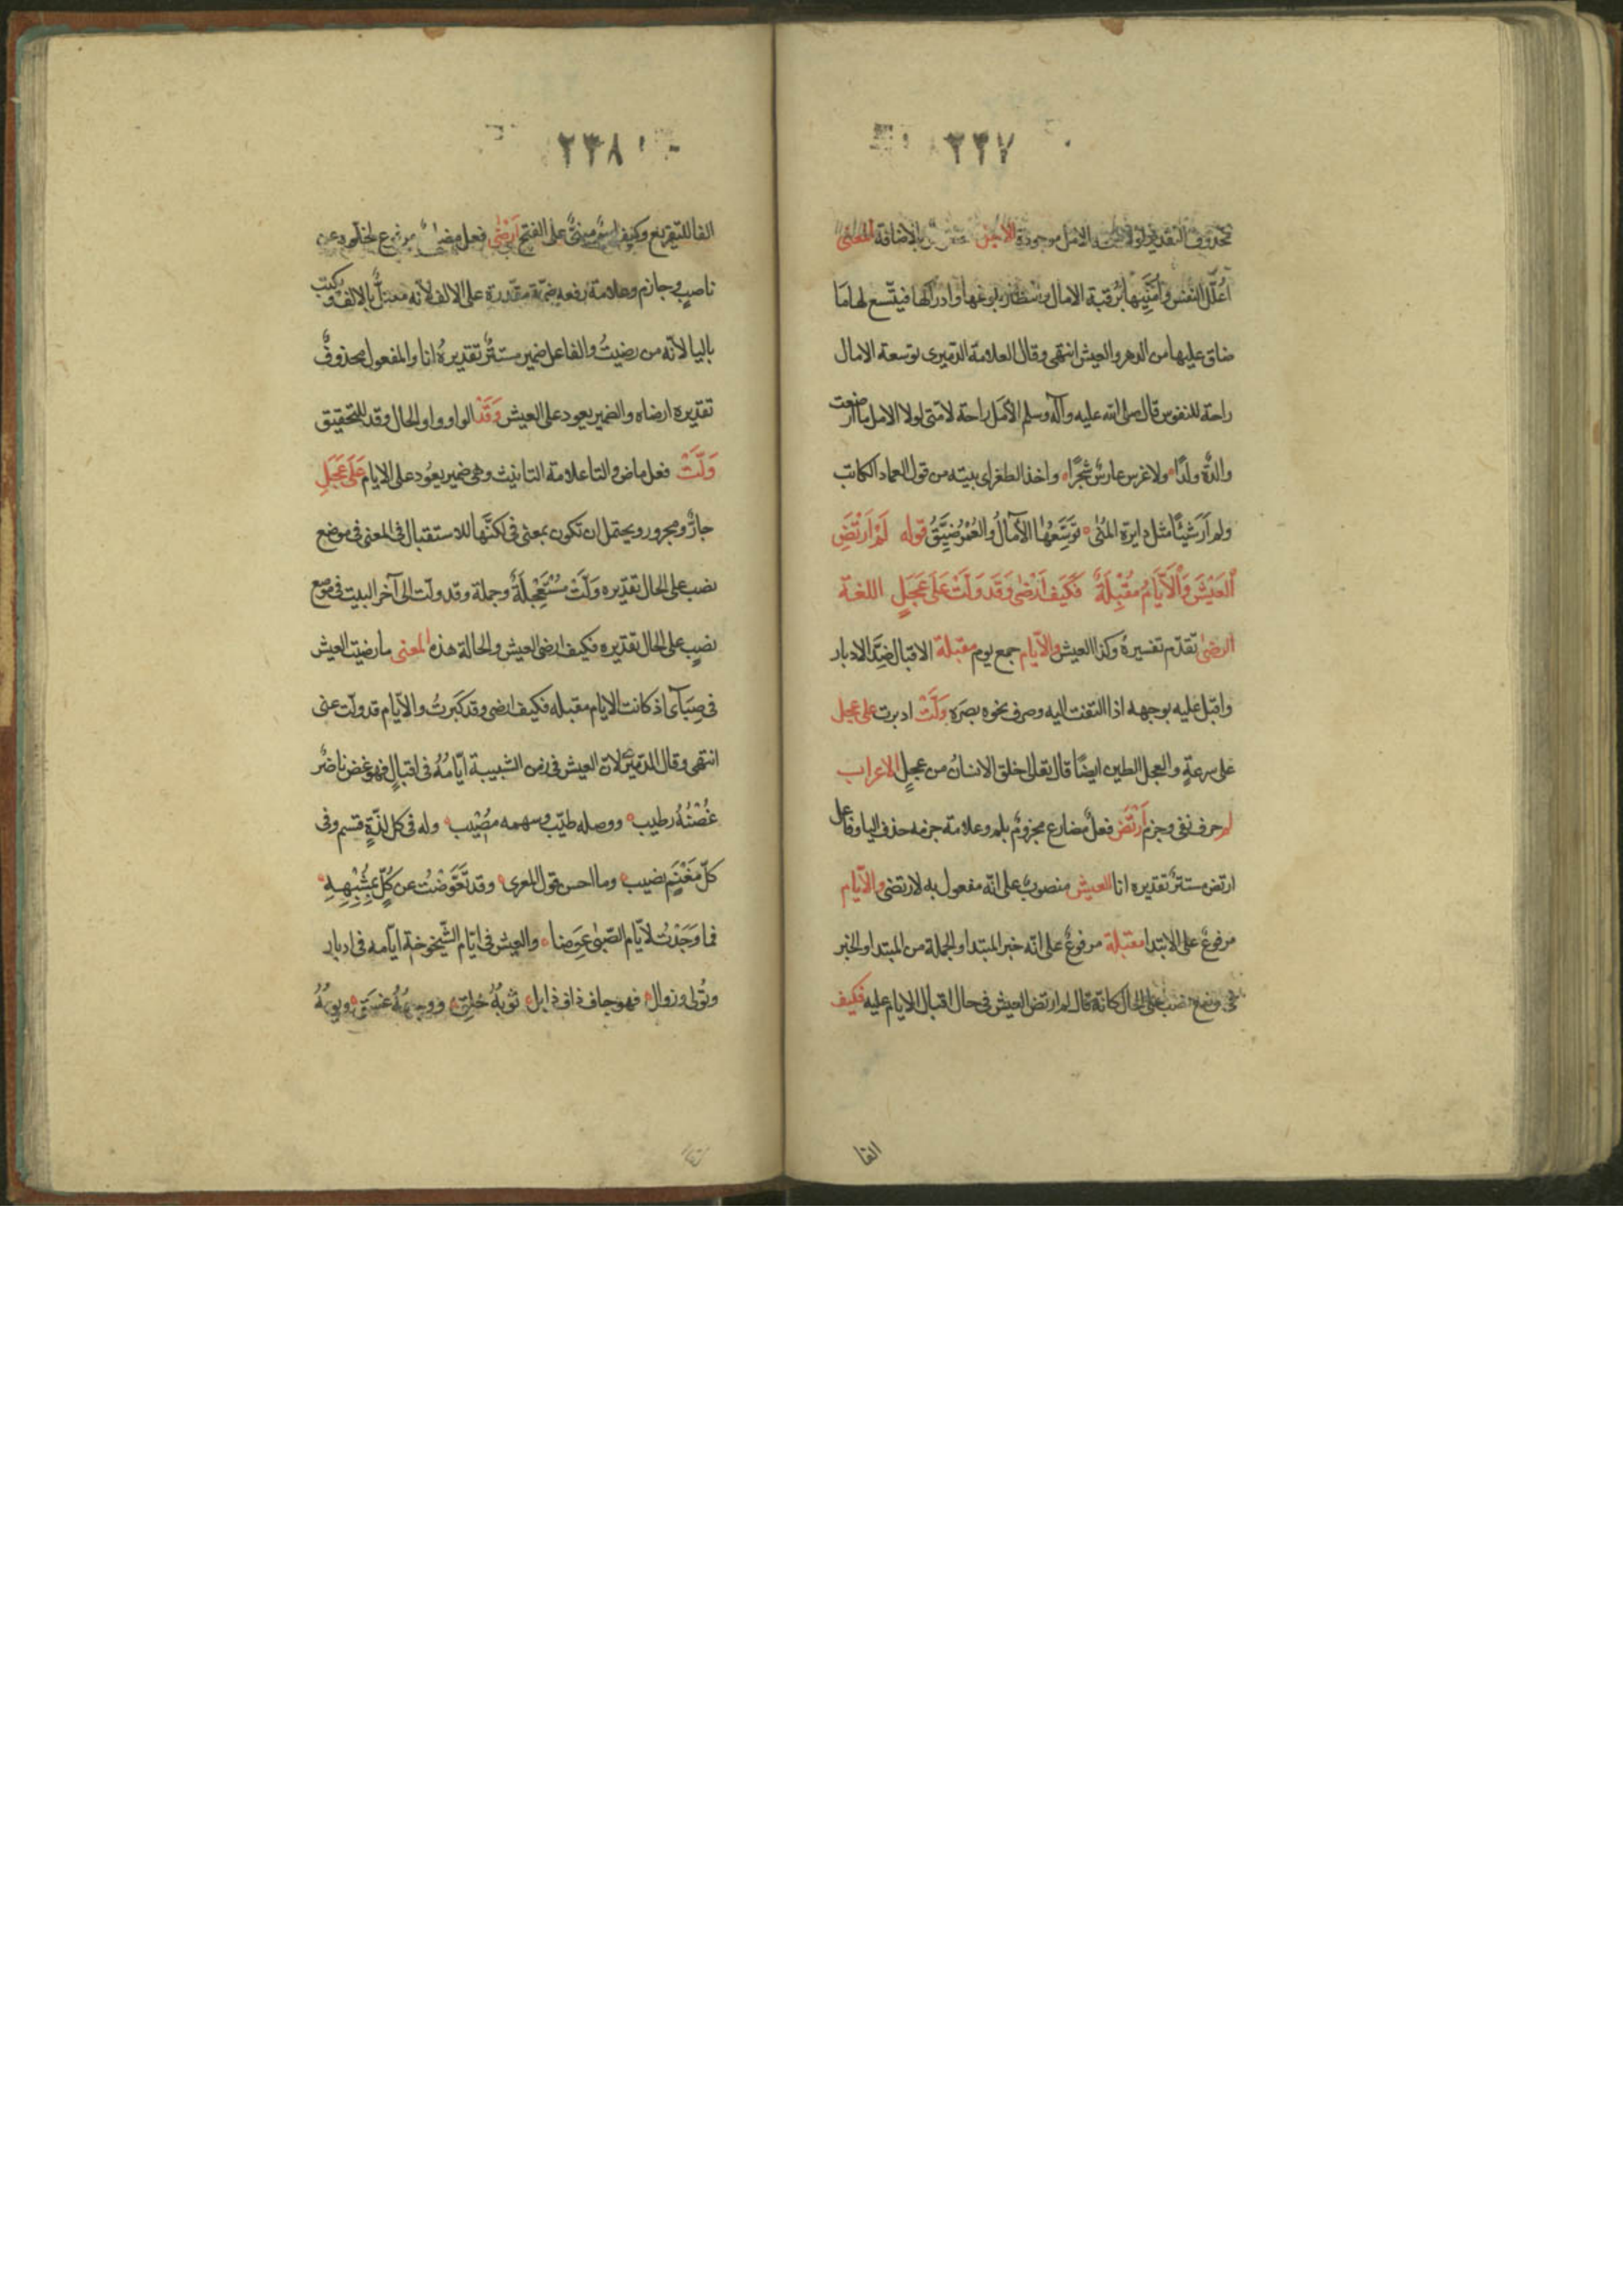 ٢٣٧
محذوف التقدير لولا فسحة الامل موجودة الامل بالاضافة المعنى
اُعَلِّلُ النفس وأُمَنِّيها بُرقبة الامال وانتظار بلوغها وادراكها فيتّسع لها مَا
ضاق عليها من الدهر والعيش انتهى وقال العلامة الدميرى توسعة الامال
راحة للنفوس قال صلى الله عليه وآله وسلم الأمَل راحة لامّتى لولا الامل ما ارضعت
والدةٌ ولدًا ولا غرس غارسٌ شجَرًا واخذ الطغراى بيته من قول العماد الكاتب
ولم اَرَ شيئًا مثل دايرة المُنٰى تَوَسِّعُهٰا الآمَالُ وَالعُمْرُ ضَيِّقُ قوله لَمْ اَرْتَضِ
اَلْعَيْشَ وَاْلَايَّامُ مُقْبِلَةٌ فَكَيفَ اَرْضٰى وَقَد وَلَّتْ عَلَى عَجَلٍ اللغة
الرضٰى تقدّم تفسيرهُ وكذا العيش والايّام جمع يوم مقبلة الاقبال ضِدُّ الادبار
واقبل عليه بوجهه اذا التفت اليه وصرف نحوه بصَره وَلَّتْ ادبرت على عجل
على سرعةٍ والعجل الطين ايضًا قال تعالى خلق الانسانُ من عجلٍ الاعراب
لم حرف نفى وجزم اَرْتَضِ فعلٌ مضارع مجزومٌ بلم وعلامة جزمه حذف اليا وفاعل
ارتض مستترٌ تقديره انا العيش منصوبٌ على انّه مفعول به لارتضى والايّام
مرفوعٌ على الابتدا مقبلة مرفوعٌ على انّه خبر المبتدا والجملة من المبتدا والخبر
فى موضع نصب على الحال كانّه قال لم ارتض العيش فى حال اقبال الايام عليه فكيف
الفا
٢٣٨
الفا للتفريع وكيف اسمٌ مبنىٌّ على الفتح اَرْضٰى فعل مضارع مرفوع لخلوه عن
ناصبٍ وجازم وعلامة رفعه ضمّة مقدرة على الالف لأنّه معتلٌّ بالالف وكتب
باليا لأنّه من رضيتُ والفاعل ضمير مستترٌ تقديرهُ انا والمفعول محذوفٌ
تقديره ارضاه والضمير يعود على العيش وَقَدْ الواو واو الحال وقد للتحقيق
وَلَّتْ فعل ماض والتا علامة التانيث وهى ضمير يعُود على الايام عَلَى عَجَلٍ
جارٌّ ومجرور ويحتمل ان تكون بمعنى فى لكنَّها للاستقبال فى المعنى فى موضع
نصب على الحال تقديره وَلَّتْ مُسْتَعْجِلَةً وجملة وقد ولت الى آخر البيت فى موضع
نصبٍ على الحال تقديره فكيف ارضى العيش والحالة هذه المعنى ما رضيت العيش
فى صِبَآى اذ كانت الايام مقبله فكيف ارضى وقد كبَرتُ والايّام قد ولّت عنى
انتهى وقال الدميرىّ لان العيش فى زمن الشبيبة ايّامُهُ فى اقبالٍ فهو غض ناضرٌ
غُصْنُهُ رطيب ووصله طيّب وسهمه مُصْيب وله فى كلّ لذّةٍ قسم وفى
كلّ مَغْنَمٍ نصيب وما احسن قول المعرى وقد تَعَوَّضْتُ عن كُلٍّ بمُشْبِهِهِ
فما وَجَدْتُ لأيّام الصّبىٰ عِوَضا والعيش فى ايّام الشّيخوخة ايّامه فى ادبار
وتُولى وزوال فهو جاف ذاف ذابل ثوبُهُ خَلِقٌ